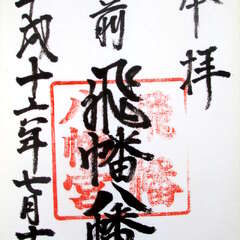 奉拝
前 飛幡八幡
平成十六年七月十
飛幡
八幡宮